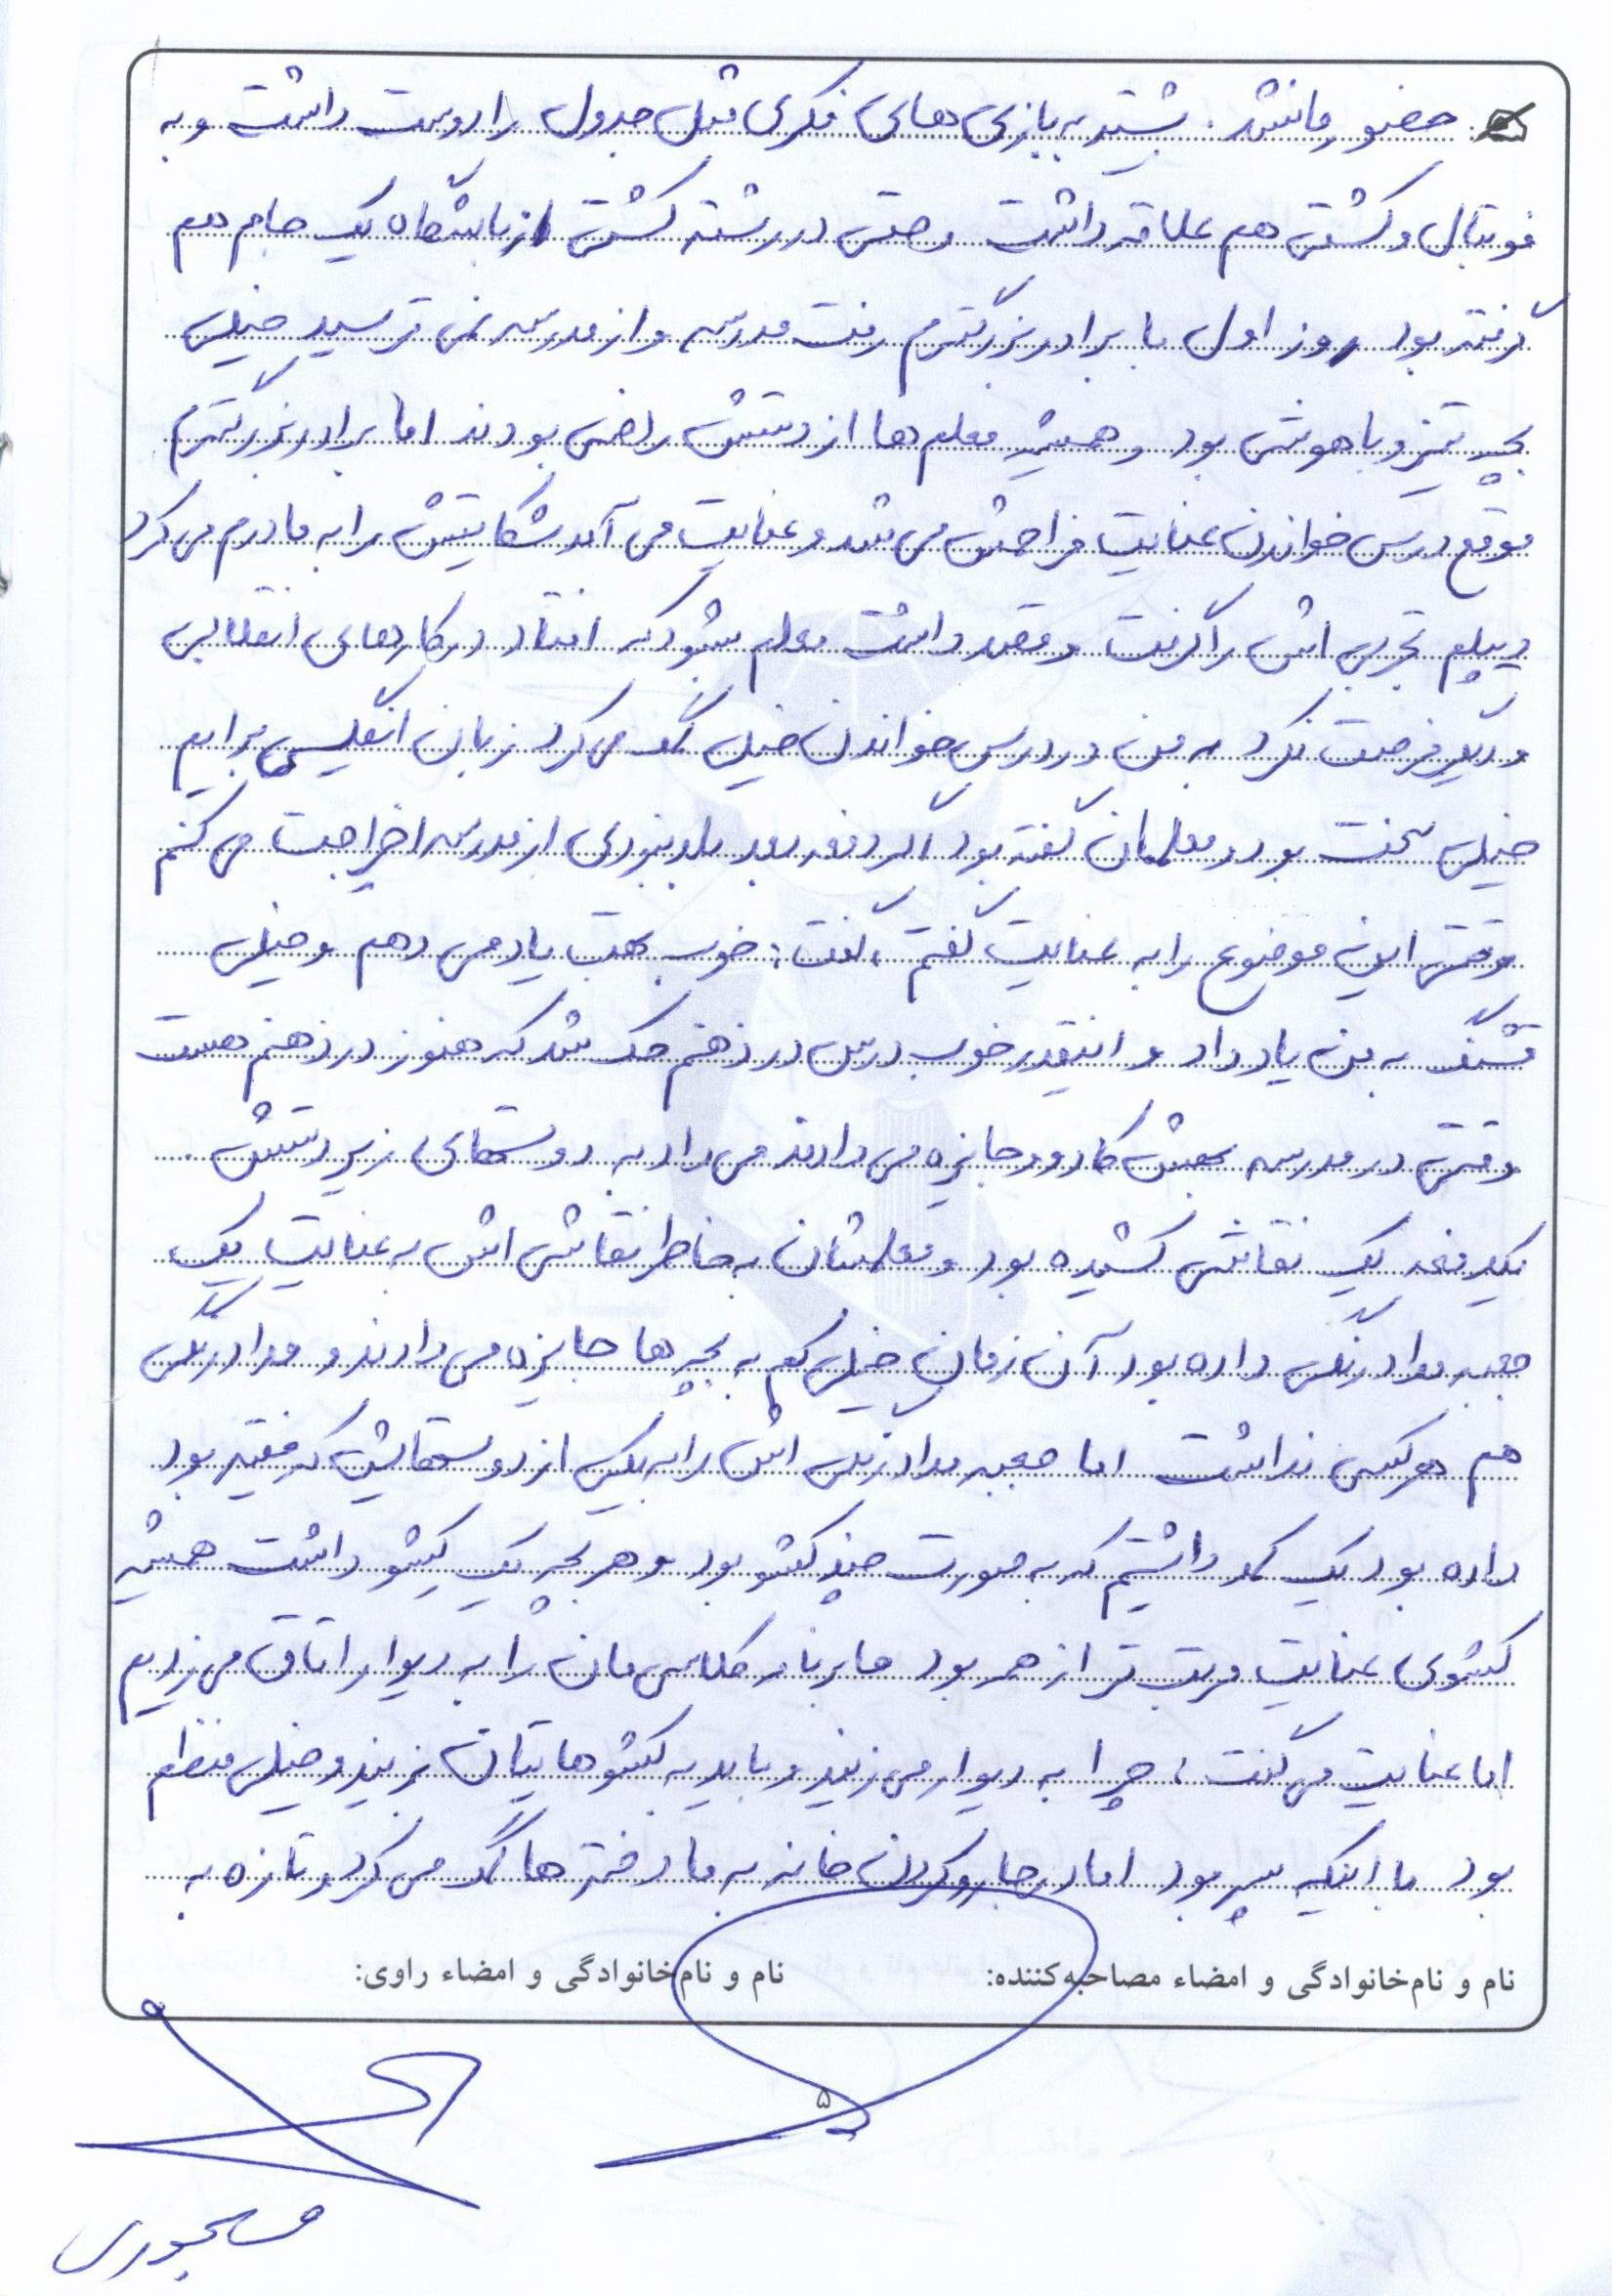 حضور مانشد. بیشتر به بازی های فکری مثل جدول را دوست داشت و به
فوتبال و کشتی هم علاقه داشت وحتی در رشته کشتی از باشگاه یک جام هم
گرفته بود روز اول با برادر بزرگترم رفت مدرسه و از مدرسه نمی ترسید خیلی
بچه تیز و باهوشی بود و همیشه معلم ها از دستش راضی بودند اما برادر بزرگترم
موقع درس خواندن عنایت مزاحمش می شد و عنایت می آمد شکایتش را به مادرم می کرد
دیپلم تجربی اش را گرفت و قصد داشت معلم بشود که افتاد در کارهای انقلابی
و دیگر فرصت نکرد به من در درس خواندن خیلی کمک می کرد زبان انگلیسی برایم
خیلی سخت بود و معلممان گفته بود اگر دفعه بعد بلد نبودی از مدرسه اخراجت می کنم
وقتی این موضوع را به عنایت گفتم، گفت: خوب بهت یاد می دهم و خیلی
قشنگ به من یاد داد و اینقدر خوب درس در ذهنم حک شد که هنوز در ذهنم هست
وقتی در مدرسه بهش کادو و جایزه می دادند می داد به دوستهای زیر دستش.
یکدفعه یک نقاشی کشیده بود و معلمشان به خاطر نقاشی اش به عنایت یک
جعبه مداد رنگی داده بود آن زمان خیلی کم به بچه ها جایزه می دادند و مداد رنگی
هم هر کسی نداشت اما جعبه مداد رنگی اش را به یکی از دوستهایش که فقیر بود
داده بود یک کمد داشتیم که به صورت چند کشو بود و هر بچه یک کشو داشت همیشه
کشوی عنایت مرتب تر از همه بود ما برنامه کلاسی مان را به دیوار اتاق می زدیم
اما عنایت می گفت: چرا به دیوار می زنید و باید به کشوهایتان بزنید و خیلی منظم
بود با اینکه پسر بود اما در جارو کردن خانه به ما دخترها کمک می کرد و تازه به
نام و نام‌خانوادگی و امضاء مصاحبه‌کننده: نام و نام‌خانوادگی و امضاء راوی:
۵